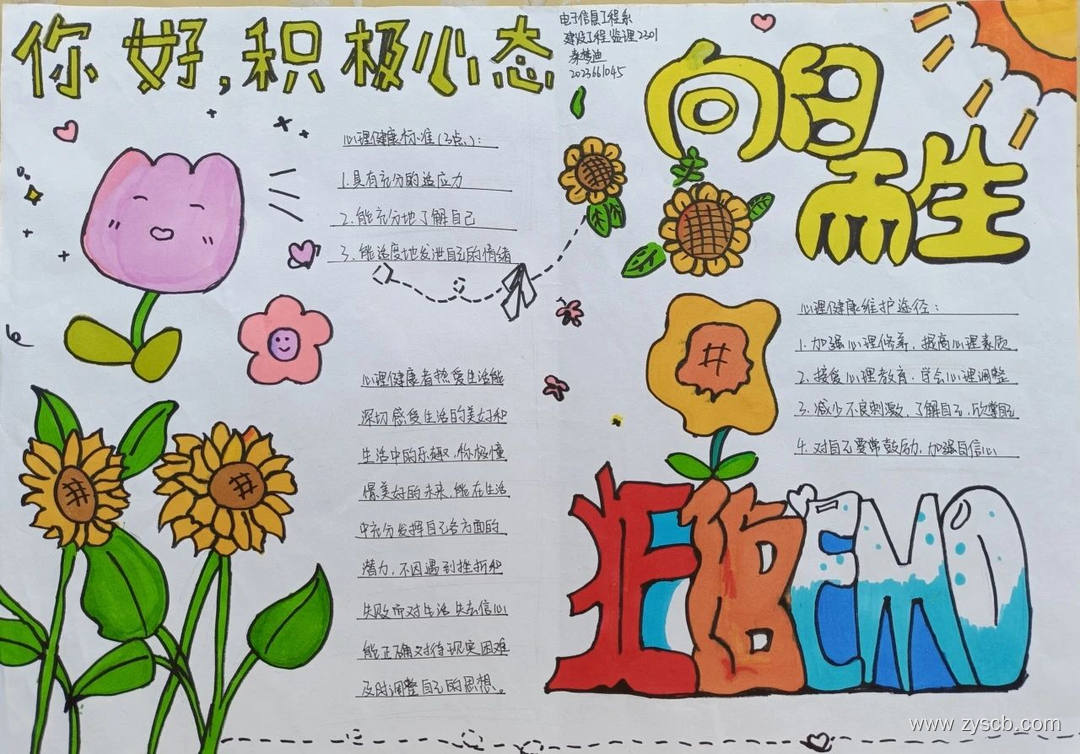 你好,积极心态
电子信息工程系
建设工程监理2301
2023661045
向日而生
心理健康标准(3点):
1.具有充分的适应力
2.能充分地了解自己
3.能适度地发泄自己的情绪
心理健康者热爱生活能
深切感受生活的美好和
生活中的乐趣,积极憧
憬美好的未来,能在生活
中充分发挥自己各方面的
潜力,不因遇到挫折和
失败而对生活失去信心
能正确对待现实困难
及时调整自己的思想。
心理健康维护途径:
1.加强心理修养,提高心理素质
2.接受心理教育,学会心理调整
3.减少不良刺激,了解自己,欣赏自己
4.对自己要常鼓励,加强自信心
拒绝EMO
www.zyscb.com